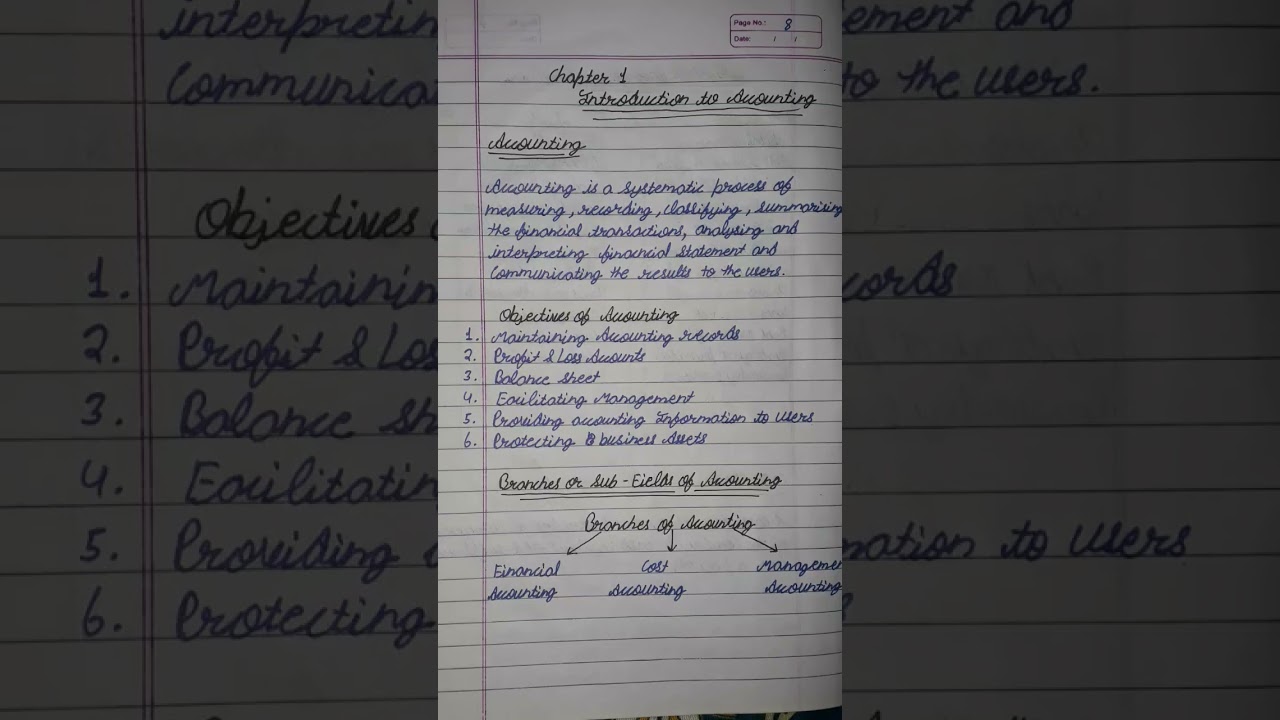 Page No.: 8
Date: / /
Chapter 1
Introduction to Accounting
Accounting
Accounting is a systematic process of
measuring, recording, classifying, summarising
the financial transactions, analysing and
interpreting finacncial statement and
communicating the results to the users.
Objectives of Accounting
1. Maintaining Accounting records
2. Profit & Loss Accounts
3. Balance sheet
4. Facilitating Management
5. Providing accounting Information to users
6. Protecting business Assets
Branches or Sub-Fields of Accounting
Branches of Accounting
Financial Cost Managemen
Accounting Accounting Accounting